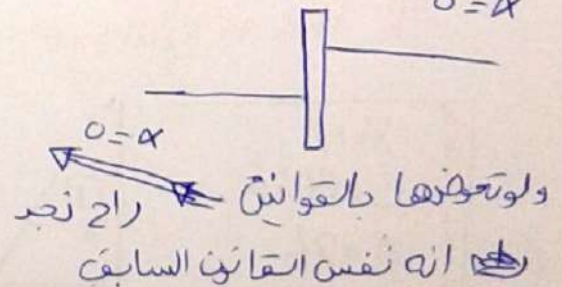 0=α
0=α
ولو تعوضها بالقوانين راح نجد
انه نفس القانون السابق